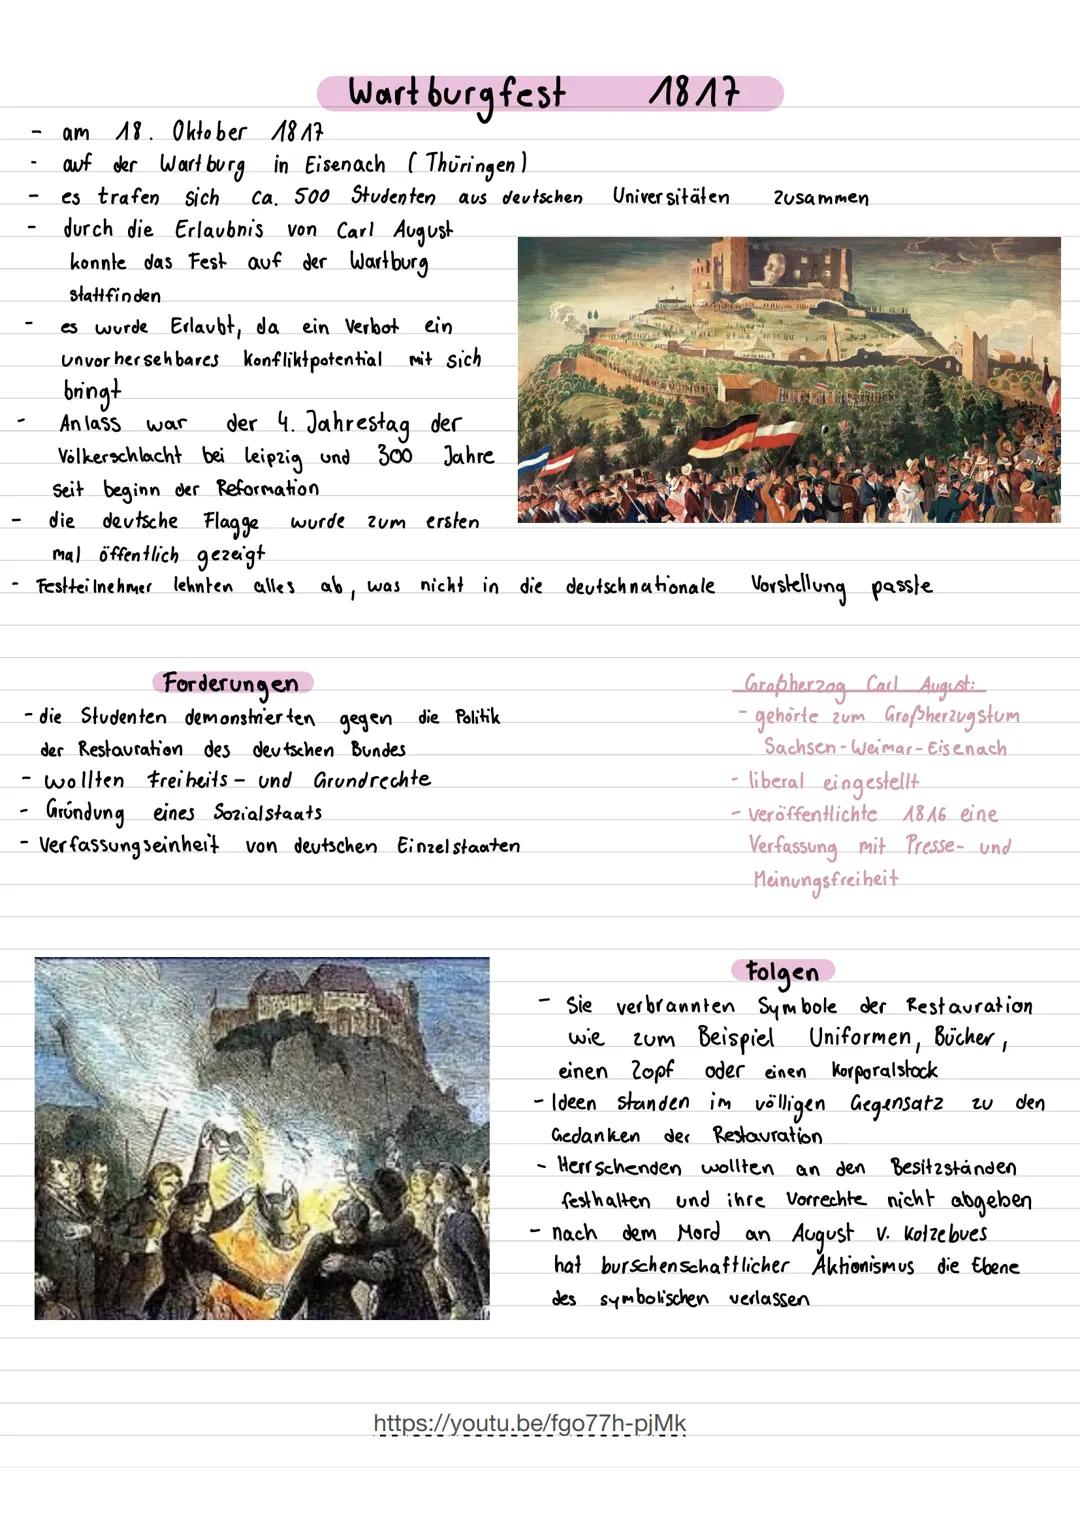 Wartburgfest 1817
- am 18. Oktober 1817
- auf der Wartburg in Eisenach (Thüringen)
- es trafen sich ca. 500 Studenten aus deutschen Universitäten zusammen
- durch die Erlaubnis von Carl August
konnte das Fest auf der Wartburg
stattfinden
- es wurde Erlaubt, da ein Verbot ein
unvorhersehbares konfliktpotential mit sich
bringt
- Anlass war der 4. Jahrestag der
Völkerschlacht bei Leipzig und 300 Jahre
seit beginn der Reformation
- die deutsche Flagge wurde zum ersten
mal öffentlich gezeigt
- Festteilnehmer lehnten alles ab, was nicht in die deutschnationale Vorstellung passte
Forderungen
- die Studenten demonstrierten gegen die Politik
der Restauration des deutschen Bundes
- wollten Freiheits- und Grundrechte
- Gründung eines Sozialstaats
- Verfassungseinheit von deutschen Einzelstaaten
Großherzog Carl August:
- gehörte zum Großherzugstum
Sachsen-Weimar-Eisenach
- liberal eingestellt
- veröffentlichte 1816 eine
Verfassung mit Presse- und
Meinungsfreiheit
Folgen
- Sie verbrannten Symbole der Restauration
wie zum Beispiel Uniformen, Bücher,
einen Zopf oder einen Korporalstock
- Ideen standen im völligen Gegensatz zu den
Gedanken der Restauration
- Herrschenden wollten an den Besitzständen
festhalten und ihre Vorrechte nicht abgeben
- nach dem Mord an August v. Kotzebues
hat burschenschaftlicher Aktionismus die Ebene
des symbolischen verlassen
https://youtu.be/fgo77h-pjMk